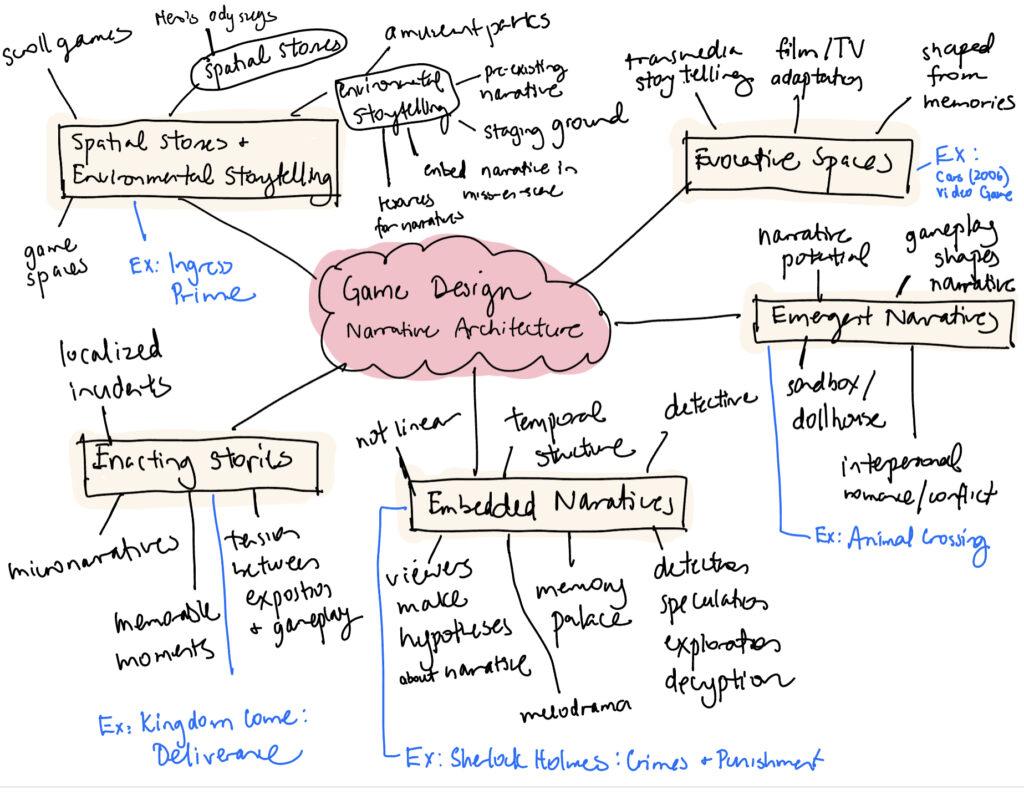 scroll games
Hero's odysseys
spatial stories
amusement parks
environmental
storytelling
pre-existing
narrative
staging ground
embed narrative in
mise-en-scene
resources
for narratives
Spatial Stories +
Environmental Storytelling
game
spaces
Ex: Ingress
Prime
transmedia
storytelling
film/TV
adaptation
shaped
from
memories
Evocative Spaces
Ex:
Cars (2006)
Video Game
Game Design
Narrative Architecture
narrative
potential
gameplay
shapes
narrative
Emergent Narratives
sandbox/
dollhouse
interpersonal
romance/conflict
Ex: Animal Crossing
localized
incidents
Enacting Stories
micronarratives
memorable
moments
tension
between
exposition
+ gameplay
Ex: Kingdom Come:
Deliverance
not linear
temporal
structure
detective
Embedded Narratives
viewers
make
hypotheses
about narrative
memory
palace
melodrama
detection
speculation
exploration
decryption
Ex: Sherlock Holmes: Crimes + Punishment